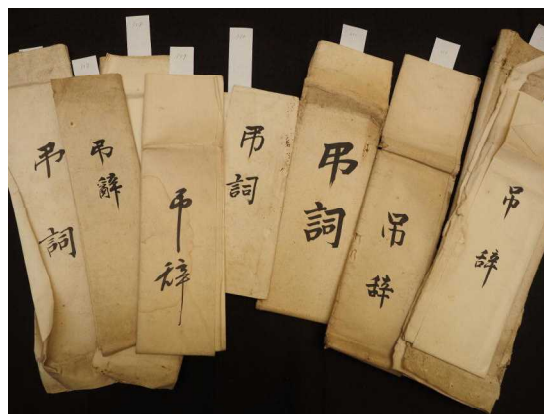 弔詞
弔辭
弔辞
弔詞
弔詞
吊辞
吊辞